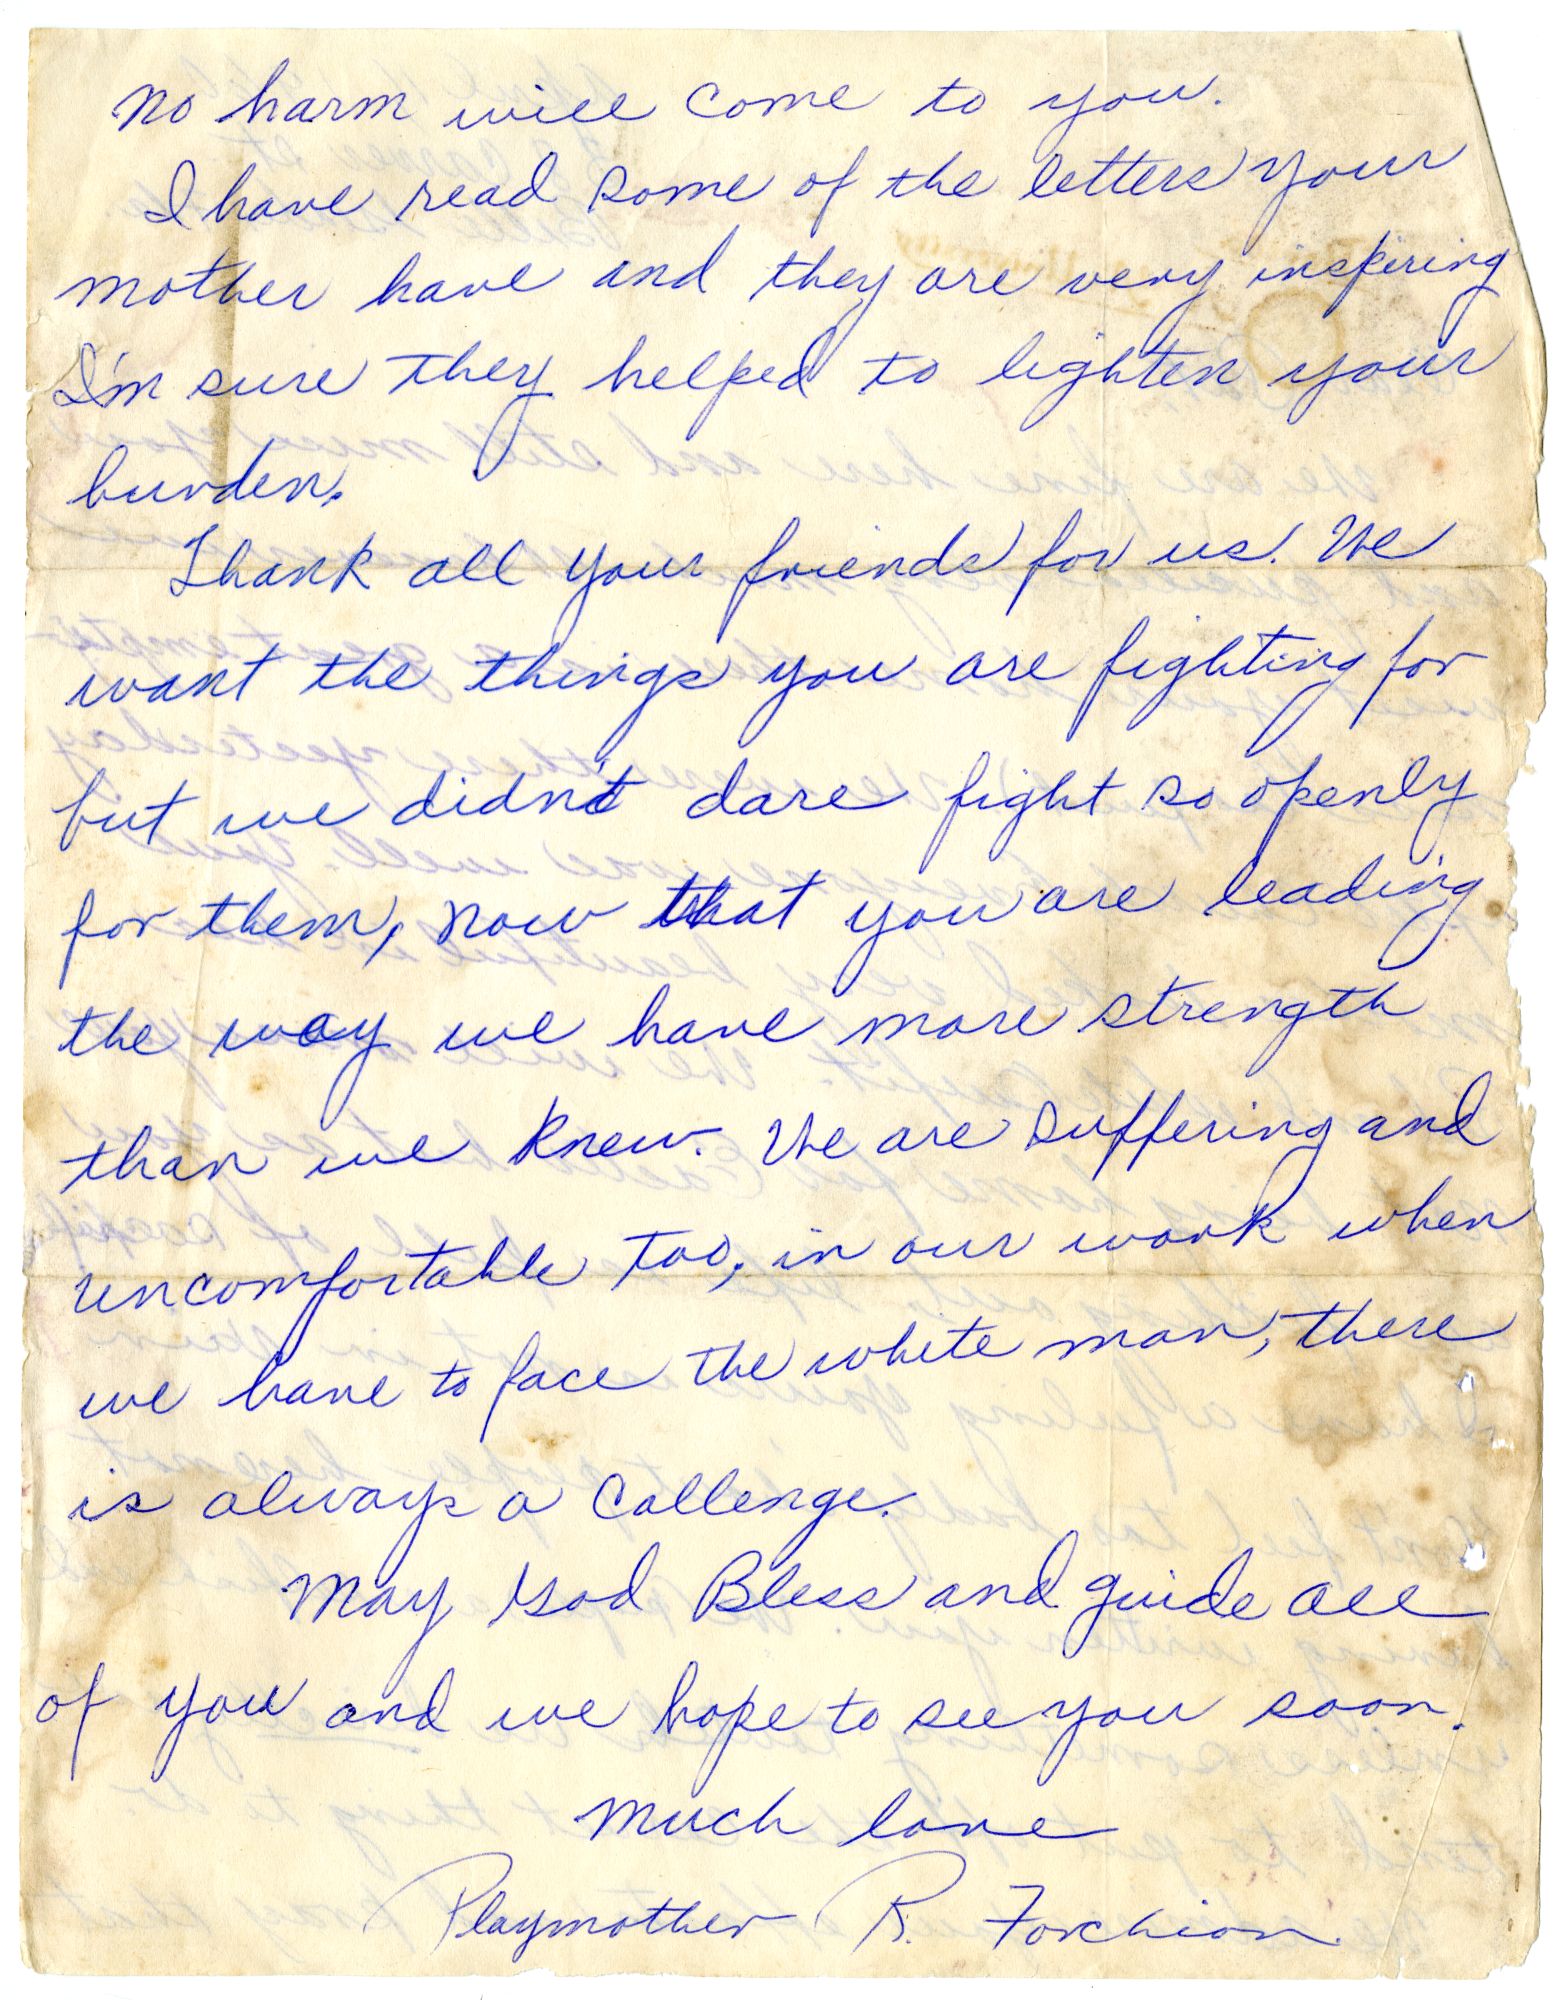 no harm will come to you.
I have read some of the letters your
mother have and they are very inspiring
I'm sure they helped to lighten your
burden.
Thank all your friends for us. We
want the things you are fighting for
but we didn't dare fight so openly
for them, now that you are leading
the way we have more strength
than we knew. We are suffering and
uncomfortable too, in our work when
we have to face the white man, there
is always a callenge.
May God Bless and guide all
of you and we hope to see you soon.
Much love
Playmother R. Forchion